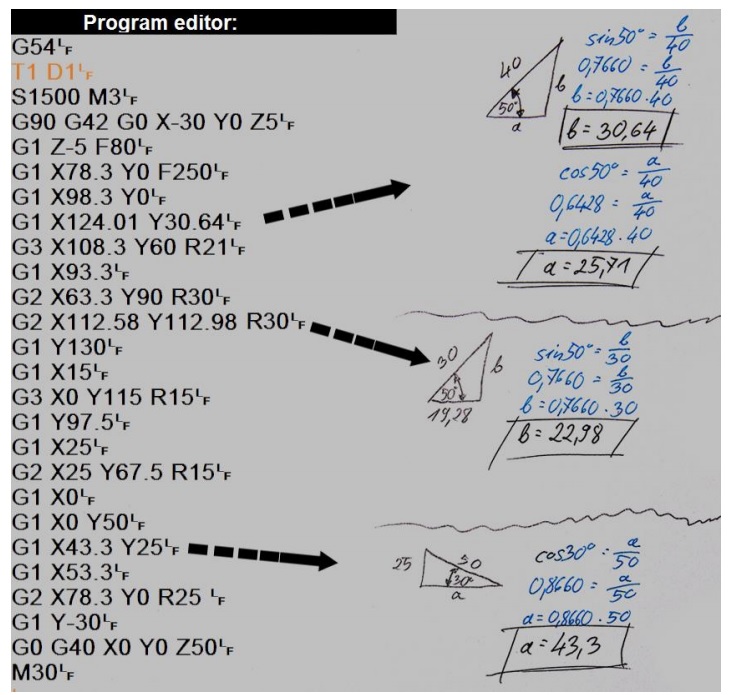 Program editor:
G54LF
T1 D1LF
S1500 M3LF
G90 G42 G0 X-30 Y0 Z5LF
G1 Z-5 F80LF
G1 X78.3 Y0 F250LF
G1 X98.3 Y0LF
G1 X124.01 Y30.64LF
G3 X108.3 Y60 R21LF
G1 X93.3LF
G2 X63.3 Y90 R30LF
G2 X112.58 Y112.98 R30LF
G1 Y130LF
G1 X15LF
G3 X0 Y115 R15LF
G1 Y97.5LF
G1 X25LF
G2 X25 Y67.5 R15LF
G1 X0LF
G1 X0 Y50LF
G1 X43.3 Y25LF
G1 X53.3LF
G2 X78.3 Y0 R25 LF
G1 Y-30LF
G0 G40 X0 Y0 Z50LF
M30LF
40
b
50°
a
sin50° = b/40
0,7660 = b/40
b = 0,7660 · 40
b = 30,64
cos50° = a/40
0,6428 = a/40
a = 0,6428 · 40
a = 25,71
30
b
50°
19,28
sin50° = b/30
0,7660 = b/30
b = 0,7660 · 30
b = 22,98
25
50
30°
a
cos30° = a/50
0,8660 = a/50
a = 0,8660 · 50
a = 43,3